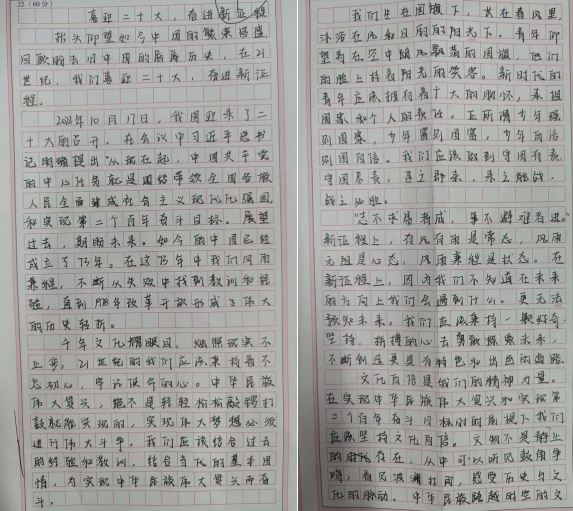 22 (60分)
喜迎二十大，奋进新征程
抬头仰望如今中国的繁荣昌盛，
回顾的去旧中国的屈辱历史，在21
世纪，我们喜迎二十大，奋进新征
程。
2022年10月17日，我国迎来了二
十大的召开，在会议中习近平总书
记明确提出“从现在起，中国共产党
的中心任务就是团结带领全国各族
人民全面建成社会主义现代化强国，
和实现第二个百年奋斗目标。展望
过去，期盼未来。如今的中国已经
成立了73年。在这73年中我们风雨
兼程，不断从失败中找到教训和经
验，直到1978年改革开放形成了伟大
的历史转折。
千年文化耀眼目，烟照现实不
止步。21世纪的我们应该秉持着不
忘初心，牢记使命的心。中华民族
伟大复兴，绝不是轻轻松松敲锣打
鼓就能实现的，实现伟大梦想必须
进行伟大斗争。我们应该结合过去
的经验和教训，结合当代的基本国
情，为实现中华民族伟大复兴而奋
斗。
我们生在国旗下，长在春风里，
沐浴在风和日丽的阳光下。青年仰
望着在空中随风飘荡的国旗，他们
的脸上持着阳光的笑容。新时代的
青年应该拥有着十大的胸怀，承担
国家和个人的责任。正所谓少年强
则国家，少年富则国富，少年自信
则国自信。我们应该做到守国有长，
守国尽责，召之即来，来之能战，
战之必胜。
“志不求易者成，事不避难者进。”
新征程上，有风有雨是常态，风雨
无阻是心态，风雨兼程是状态。在
新征程上，因为我们不知道在未来
的方向上我们会遇到什么。更无法
预知未来。我们应该秉持一颗好奇，
坚持，拼搏的心去勇敢探索未来，
不断创造更具有特色和出色的道路。
文化自信是我们的精神力量。
在实现中华民族伟大复兴和实现第
二个百年奋斗目标的前提下我们
应该坚持文化自信。文物不是静止
的时代存在，从中可以听见鼓角争
鸣，看见波澜壮阔，感受历史与文
化的脉动。中华民族跨越时空的文